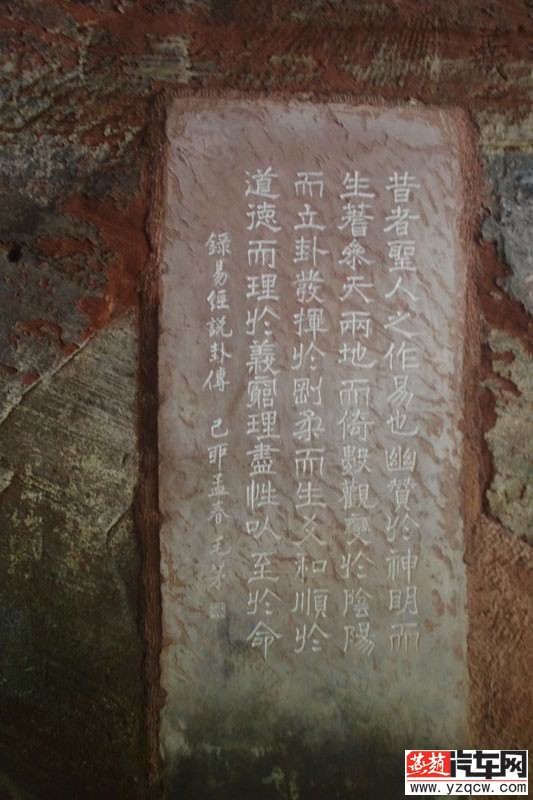 昔者聖人之作易也幽贊於神明而
生蓍參天兩地而倚數觀變於陰陽
而立卦發揮於剛柔而生爻和順於
道德而理於義窮理盡性以至於命
錄易經說卦傳 己卯孟春
燕趙汽车网
www.yzqcw.com